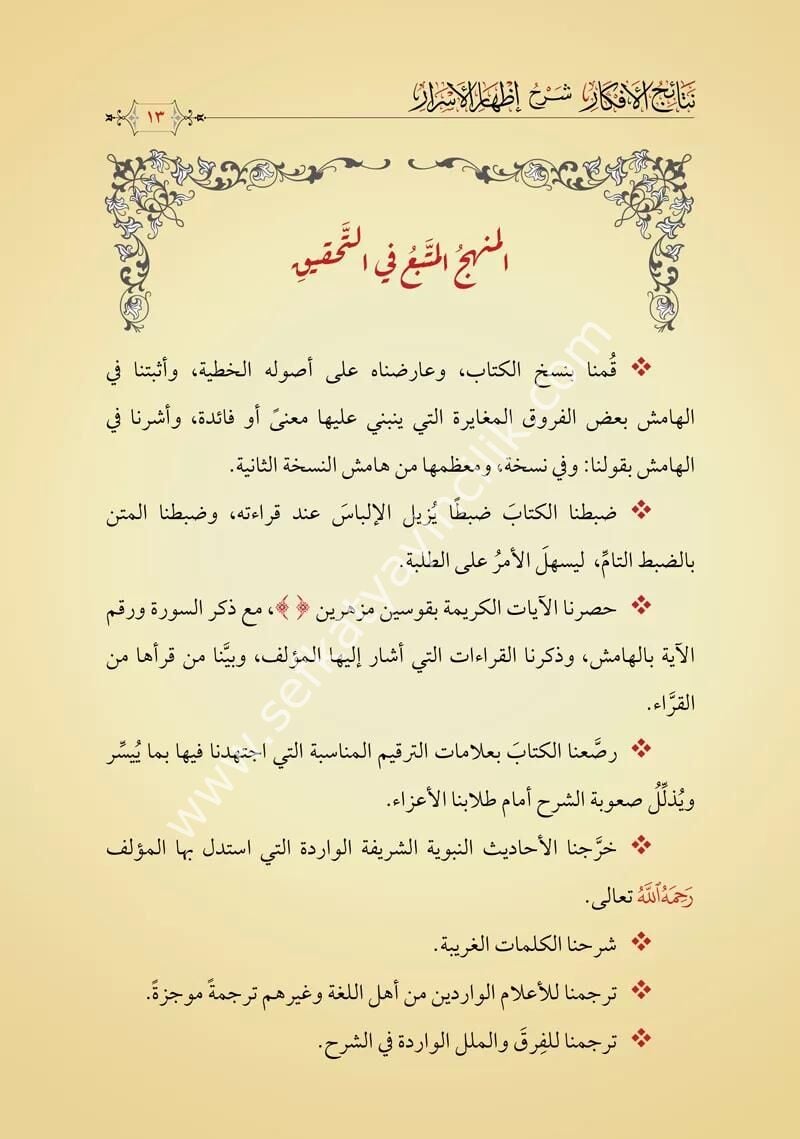 نَتَائِجُ الأَفْكَارِ شَرْحُ إِظْهَارِ الأَسْرَارِ
١٣
المنهجُ المتَّبعُ في التَّحقيقِ
❖ قُمنا بنسخ الكتاب، وعارضناه على أصوله الخطية، وأثبتنا في
الهامش بعض الفروق المغايرة التي ينبني عليها معنىً أو فائدة، وأشرنا في
الهامش بقولنا: وفي نسخة، ومعظمها من هامش النسخة الثانية.
❖ ضبطنا الكتابَ ضبطًا يُزيل الإلباسَ عند قراءته، وضبطنا المتن
بالضبط التامِّ، ليسهلَ الأمرُ على الطلبة.
❖ حصرنا الآيات الكريمة بقوسين مزهرين ﴿ ﴾، مع ذكر السورة ورقم
الآية بالهامش، وذكرنا القراءات التي أشار إليها المؤلف، وبيَّنا من قرأها من
القرَّاء.
❖ رصَّعنا الكتابَ بعلامات الترقيم المناسبة التي اجتهدنا فيها بما يُيسِّر
ويُذلِّلُ صعوبة الشرح أمام طلابنا الأعزاء.
❖ خرَّجنا الأحاديث النبوية الشريفة الواردة التي استدل بها المؤلف
رَحِمَهُ اللَّهُ تعالى.
❖ شرحنا الكلمات الغريبة.
❖ ترجمنا للأعلام الواردين من أهل اللغة وغيرهم ترجمةً موجزةً.
❖ ترجمنا للفِرقَ والملل الواردة في الشرح.
www.sefkatyayincilik.com